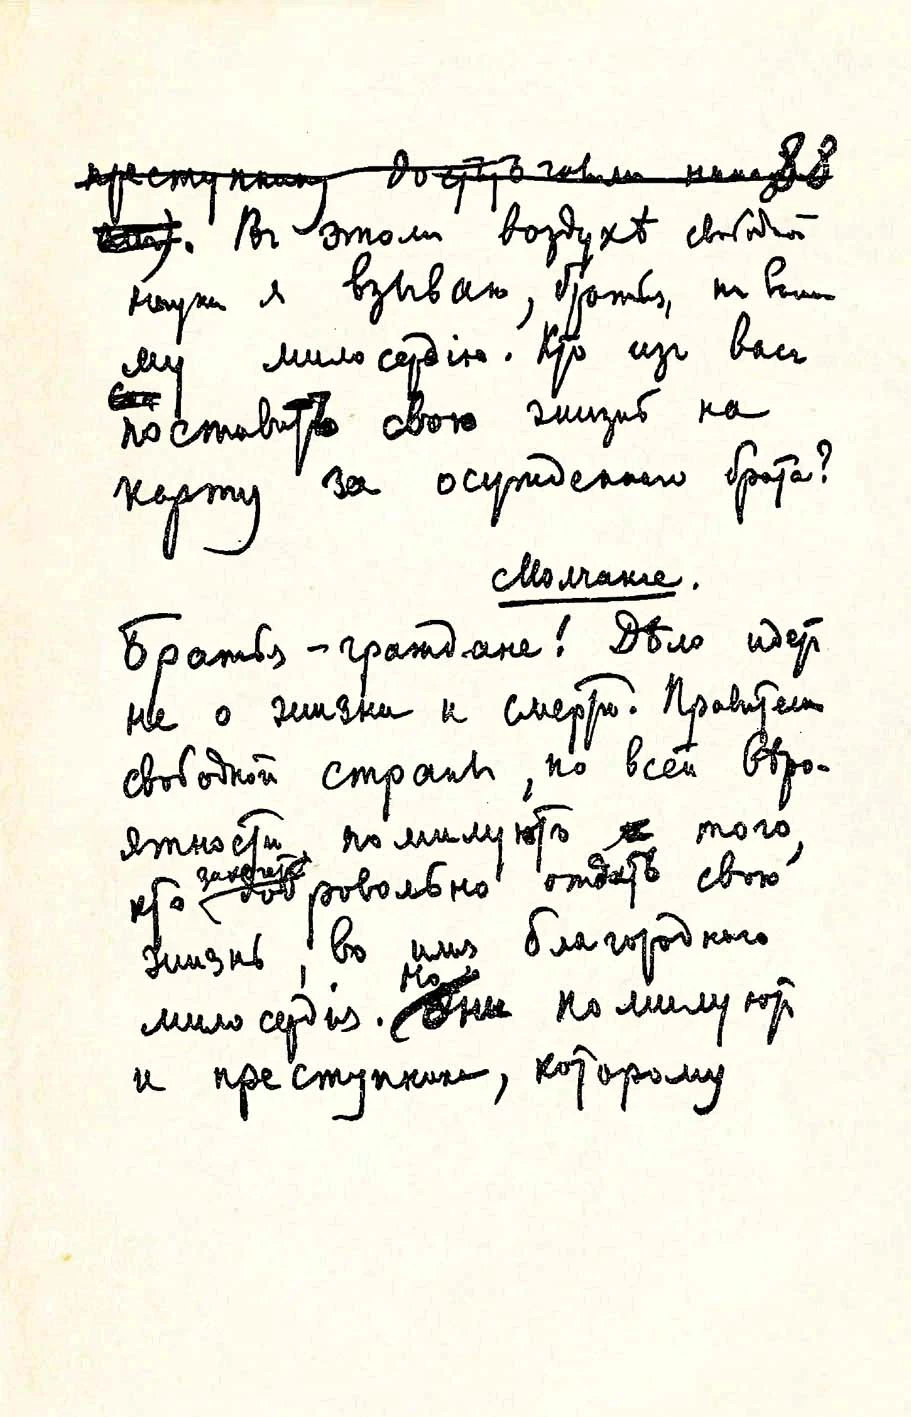 преступнику 88
. Въ этомъ воздухѣ свободной
науки я взываю, братья, къ ваше-
му милосердію. Кто изъ васъ
поставитъ свою жизнь на
карту за осужденнаго брата?
Молчаніе.
Братья-граждане! Дѣло идетъ
не о жизни и смерти. Правители
свободной страны, по всей вѣро-
ятности, помилуютъ того,
захочетъ
кто добровольно отдать свою
жизнь, во имя благороднаго
Но
милосердія. Они помилуютъ
и преступника, которому